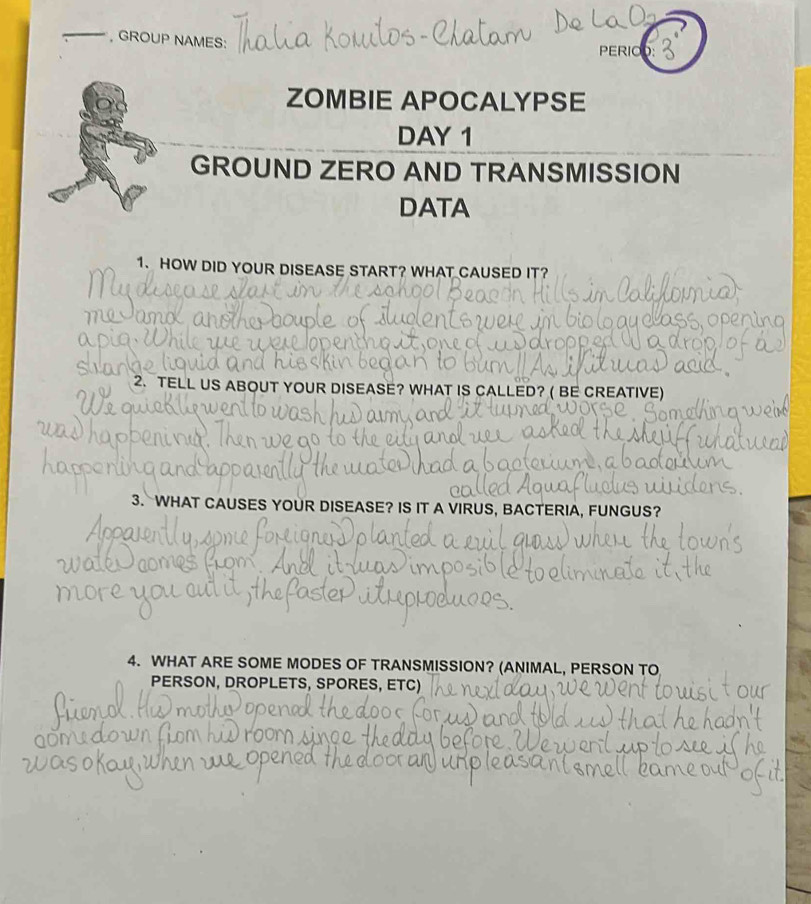 GROUP NAMES: Thalia Koutos-Chatam De La O
PERIOD: 3°
ZOMBIE APOCALYPSE
DAY 1
GROUND ZERO AND TRANSMISSION
DATA
1. HOW DID YOUR DISEASE START? WHAT CAUSED IT?
My disease start in the school Beacon Hills in California,
me and another couple of students were in biology class, opening
a pig. While we were opening it, one of us dropped a drop of a
strange liquid and his skin began to burn!! As if it was acid.
2. TELL US ABOUT YOUR DISEASE? WHAT IS CALLED? ( BE CREATIVE)
We quickly went to wash his arm, and it turned worse. Something weird
was happening. Then we go to the city and we asked the sheriff what was
happening and apparently the water had a bacterium, a bacterium
called Aquafluctus viridens.
3. WHAT CAUSES YOUR DISEASE? IS IT A VIRUS, BACTERIA, FUNGUS?
Apparently, some foreigners planted a evil grass where the town's
water comes from. And it was imposible to eliminate it, the
more you cut it, the faster it reproduces.
4. WHAT ARE SOME MODES OF TRANSMISSION? (ANIMAL, PERSON TO
PERSON, DROPLETS, SPORES, ETC) The next day, we went to visit our
friend. His mother opened the door for us and told us that he hadn't
come down from his room since the day before. We went up to see if he
was okay, when we opened the door an unpleasant smell came out of it.